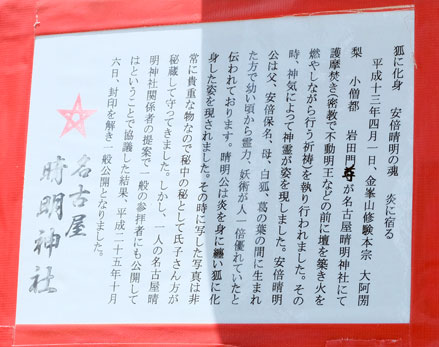 狐に化身　安倍晴明の魂　炎に宿る
平成十三年四月一日、金峯山修験本宗　大阿闍
梨　小僧都　岩田門尊が名古屋晴明神社にて
護摩焚き(密教で不動明王などの前に壇を築き火を
燃やしながら行う祈祷)を執り行われました。その
時、神気によって神霊が姿を現しました。安倍晴明
公は父、安倍保名、母、白狐、葛の葉の間に生まれ
た方で幼い頃から霊力、妖術が人一倍優れていたと
伝われております。晴明公は炎を身に纏い狐に化
身した姿を現されました。その時に写した写真は非
常に貴重な物なので秘中の秘として氏子さん方が
秘蔵して守ってきました。しかし、一人の名古屋晴
明神社関係者の提案で一般の参拝者にも公開して
はということで協議した結果、平成二十五年十月
六日、封印を解き一般公開となりました。
名古屋
晴明神社